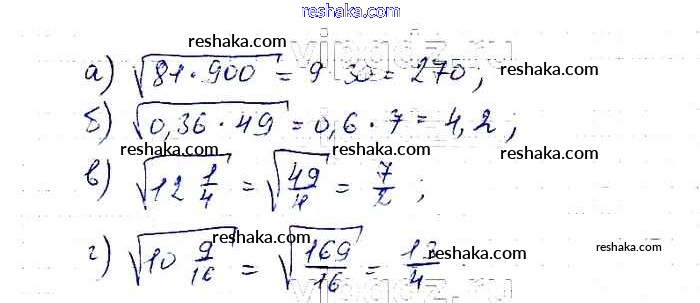 reshaka.com
reshaka.com
vipgdz.ru
а) √81·900 = 9 30 = 270 ; reshaka.com
reshaka.com
б) √0,36 · 49 = 0,6 · 7 = 4,2 ;
reshaka.com reshaka.com
в) √12 1/4 = √49/4 = 7/2 ;
reshaka.com reshaka.com reshaka.com
г) √10 9/16 = √169/16 = 13/4